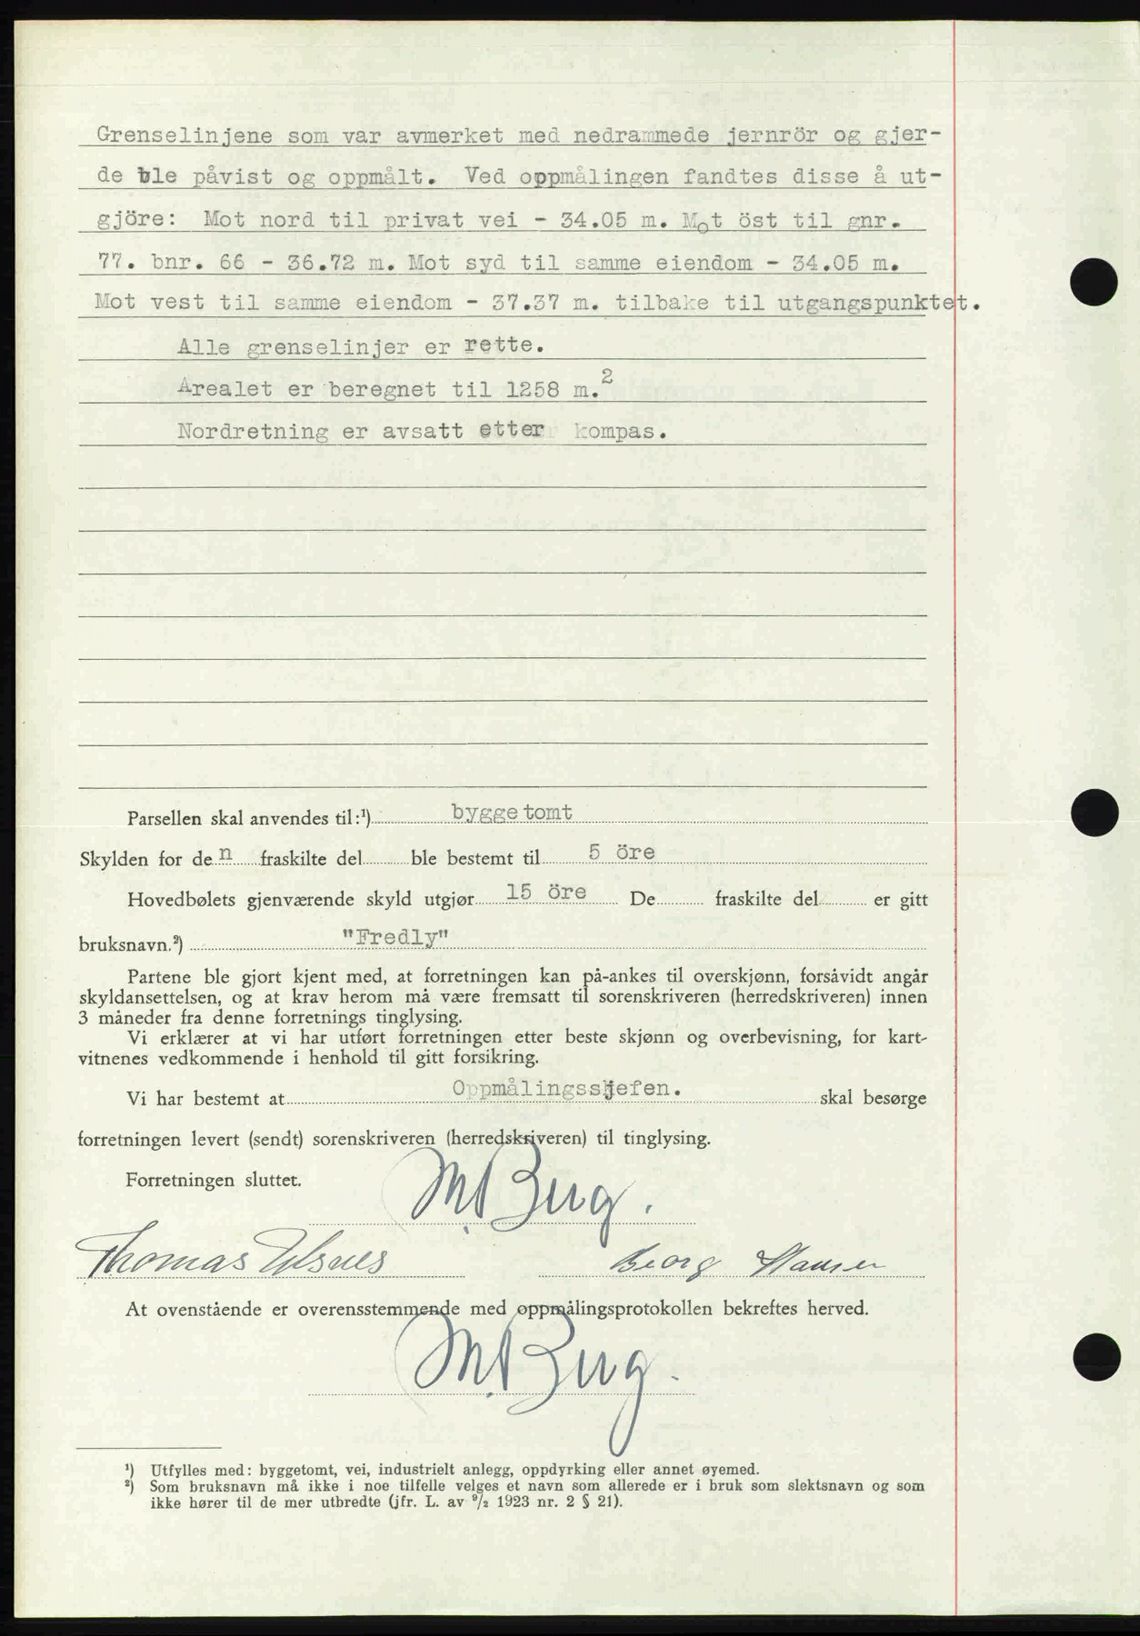 Grenselinjene som var avmerket med nedrammede jernrör og gjer-
de ble påvist og oppmålt. Ved oppmålingen fandtes disse å ut-
gjöre: Mot nord til privat vei - 34.05 m. Mot öst til gnr.
77. bnr. 66 - 36.72 m. Mot syd til samme eiendom - 34.05 m.
Mot vest til samme eiendom - 37.37 m. tilbake til utgangspunktet.
Alle grenselinjer er rette.
Arealet er beregnet til 1258 m.²
Nordretning er avsatt etter kompas.
Parsellen skal anvendes til:¹) byggetomt
Skylden for den fraskilte del ble bestemt til 5 öre
Hovedbølets gjenværende skyld utgjør 15 öre De fraskilte del er gitt
bruksnavn.²) "Fredly"
Partene ble gjort kjent med, at forretningen kan på-ankes til overskjønn, forsåvidt angår
skyldansettelsen, og at krav herom må være fremsatt til sorenskriveren (herredskriveren) innen
3 måneder fra denne forretnings tinglysing.
Vi erklærer at vi har utført forretningen etter beste skjønn og overbevisning, for kart-
vitnenes vedkommende i henhold til gitt forsikring.
Vi har bestemt at Oppmålingssjefen. skal besørge
forretningen levert (sendt) sorenskriveren (herredskriveren) til tinglysing.
Forretningen sluttet.
Thomas Georg Hansen
At ovenstående er overensstemmende med oppmålingsprotokollen bekreftes herved.
¹) Utfylles med: byggetomt, vei, industrielt anlegg, oppdyrking eller annet øyemed.
²) Som bruksnavn må ikke i noe tilfelle velges et navn som allerede er i bruk som slektsnavn og som
ikke hører til de mer utbredte (jfr. L. av ⁹/₂ 1923 nr. 2 § 21).